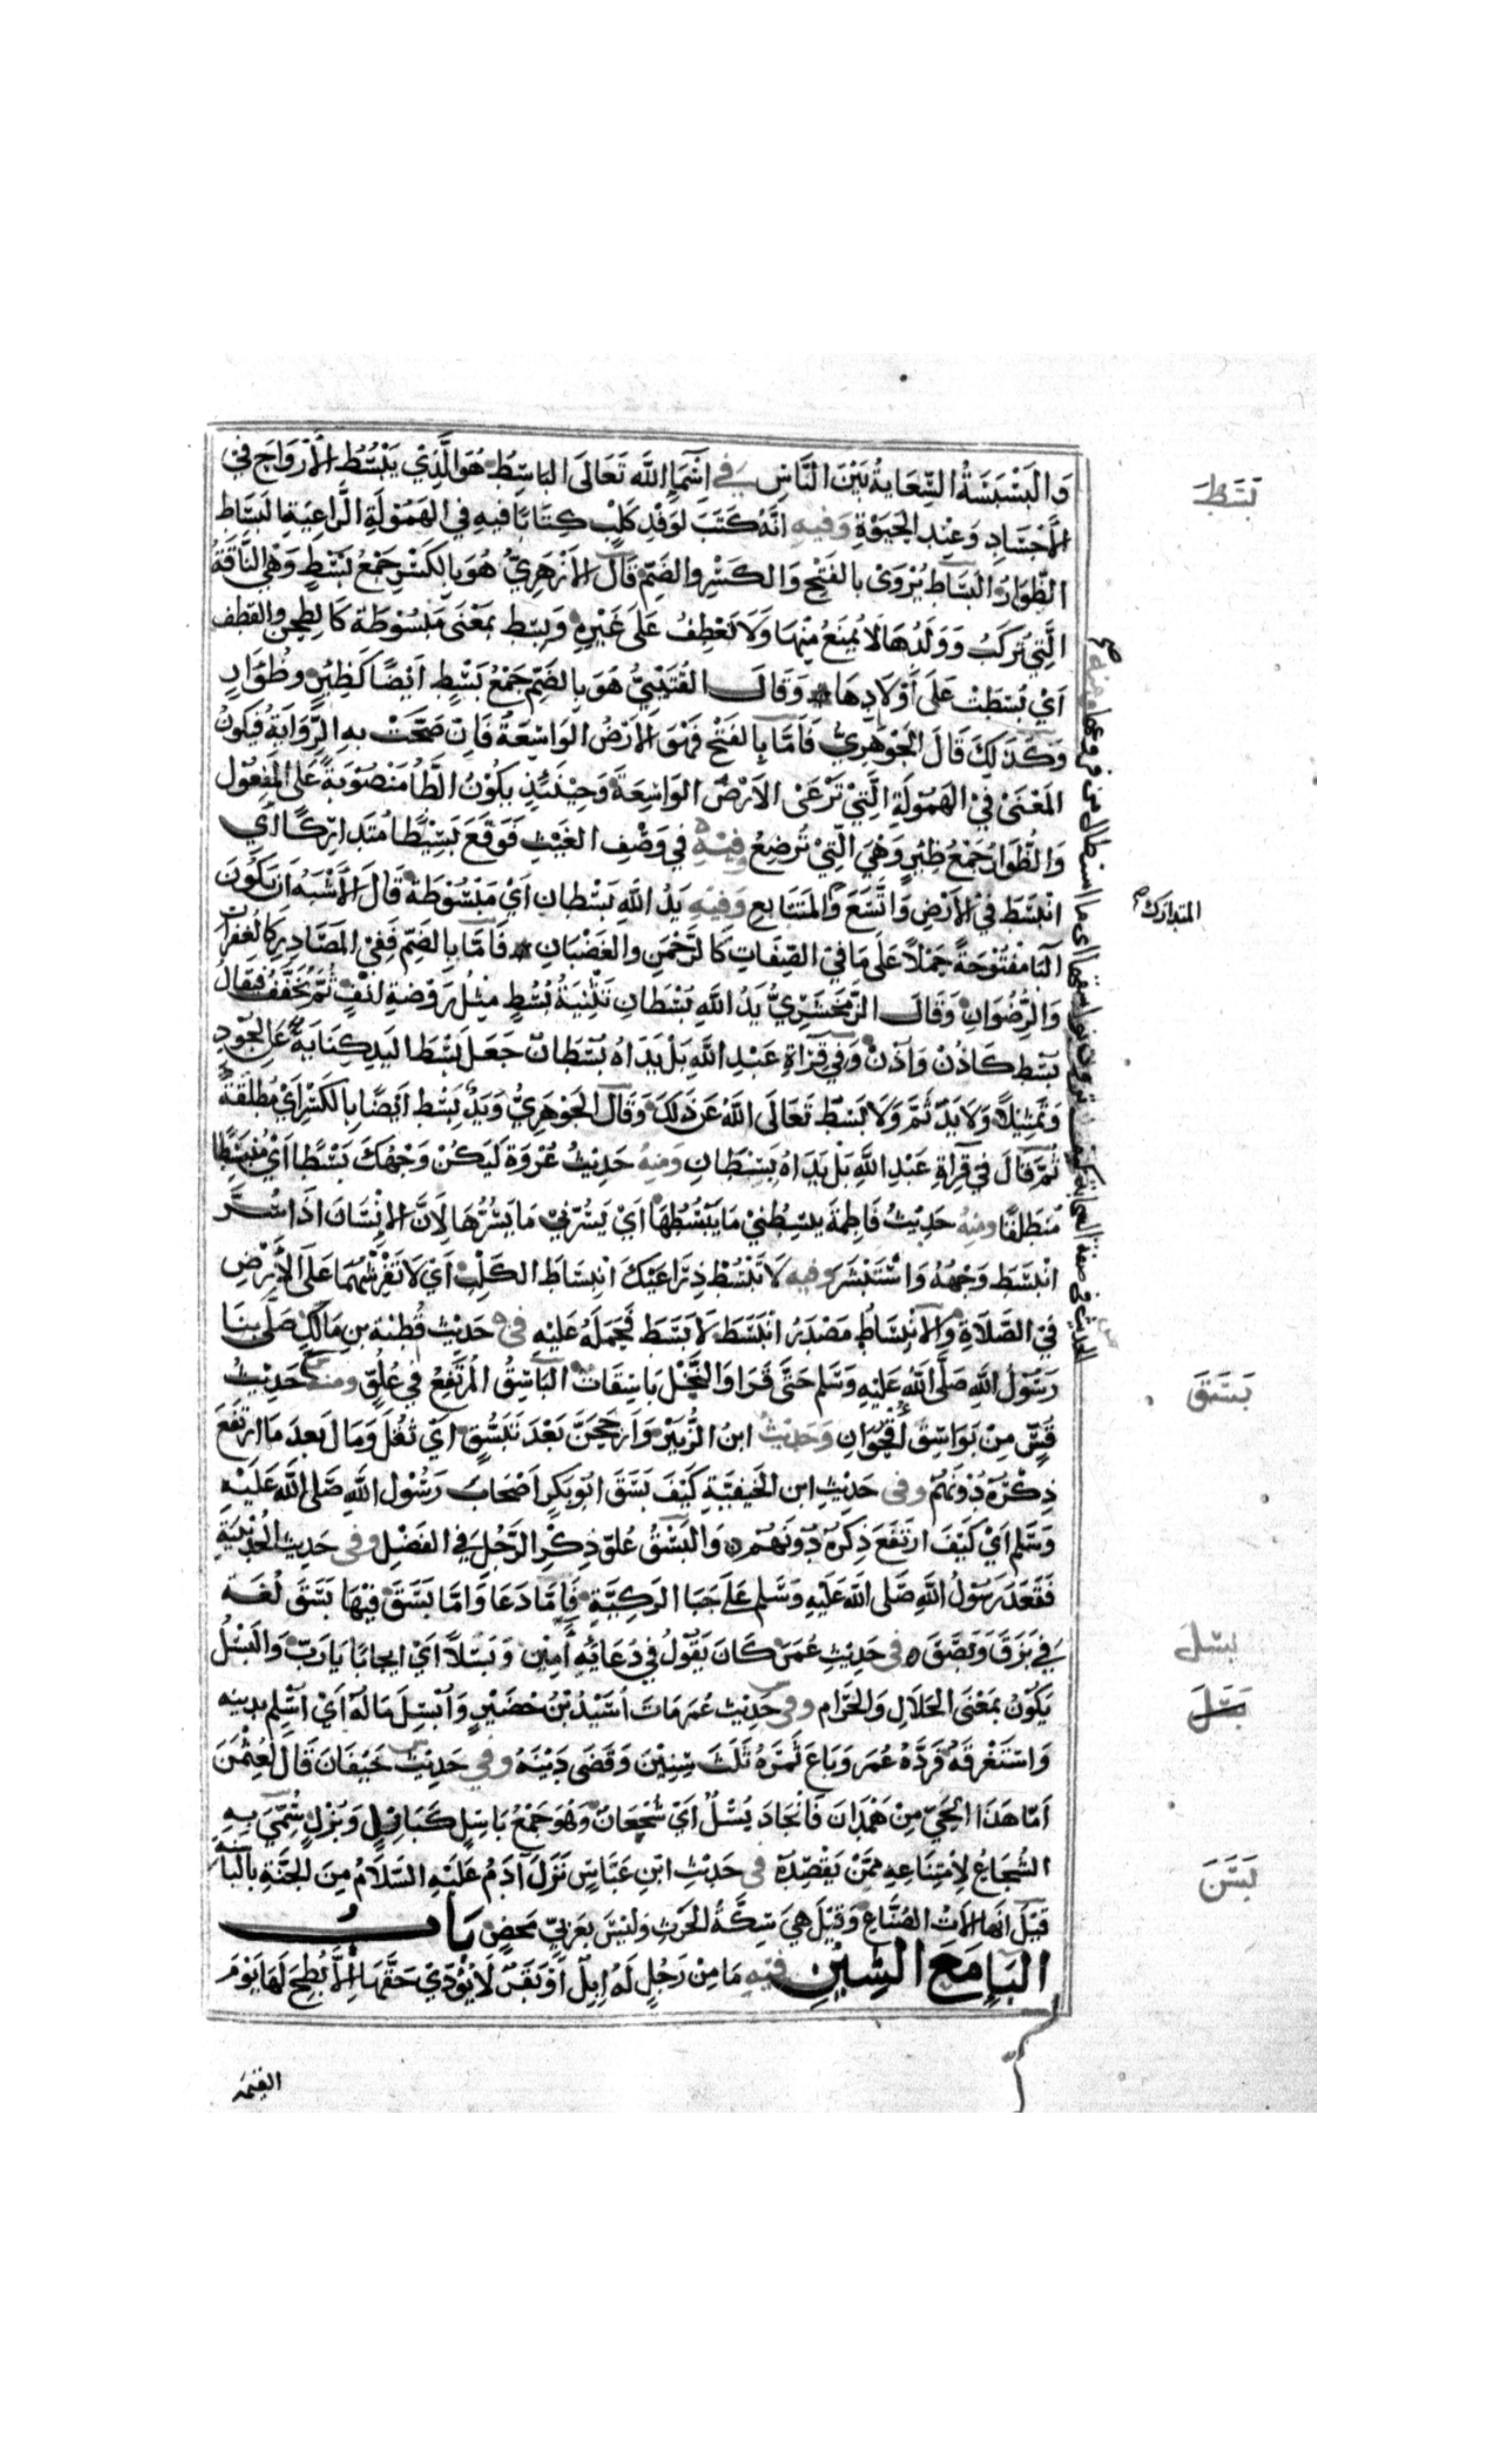 وَالْبَسْبَسَةُ السِّعَايَةُ بَيْنَ النَّاسِ في أَسْمَاءِ اللَّهِ تَعَالَى البَاسِطُ هُوَ الَّذِي يَبْسُطُ الأَرْوَاحَ فِي
الأَجْسَادِ وَعِنْدِ الحَيَوٰةِ وَفيهِ انَّهُ كَتَبَ لِوَفْدِ كَلْبٍ كِتَابًا فيهِ فِي الهَمُوْلَةِ الرَّاعِيَةِ البَسَاط
الظُّؤَارُ البَسَاط يُرْوَىٰ بالفَتْحِ وَالكَسْرِ والضَمِّ قَالَ الأَزْهَرِيُّ هُوَ بِالكَسْرِ جَمْعُ بَسْطٍ وَهْيَ النَّاقَةُ
الَّتِيْ تُرِكَتْ وَوَلَدُهَا لَا يُمنَعُ مِنْهَا وَلَا تَعْطِفُ عَلَى غَيْرِهِ وَبِسْط بمَعْنَى مَبْسُوْطَة كَالطِحْنِ والقِطف
اَيْ بُسِطَتْ عَلَى أَوْلَادِهَا وَقَالَ القُتَيْبِيُّ هُوَ بِالضَمِّ جَمْعُ بَسْطٍ أَيْضًا كَظِئْرٍ وظُؤَارٍ
وَكَذَلِكَ قَالَ الجَوْهَرِيُّ فَأَمَّا بِالفَتْحِ فَهْوَ الأَرْضُ الوَاسِعَةُ فَاِنْ صَحَّتْ بهِ الرِّوَايَةُ فَيَكُونُ
المَعْنَىٰ فِيْ الهَمُوْلَةِ الَّتِيْ تَرْعَىٰ الأَرْضَ الوَاسِعَةَ وَحِيْنَئِذٍ يكُوْنُ الطَّا مَنْصُوْبَةً عَلَى المَفْعُوْل
وَالظُّؤَارُ جَمْعُ ظِئْرٍ وَهْيَ الَّتِيْ تُرضِعُ وفِيْهِ في وَصْفِ الغَيْثِ فَوَقَعَ بَسِيْطًا مُتَدَارِكًا اَي
انْبَسَطَ فِيْ الأَرْضِ وَاتَّسَعَ وَالمُتَتَابِعِ وَفِيْهِ يَدُ اللَّهِ بَسْطَانِ اَيْ مَبْسُوْطَةٌ قَالَ الأَشْبَهُ اَنْ يَكُوْنَ
البَا مَفْتُوْحَةً حَمْلاً عَلَى مَا فِيْ الصِّفَاتِ كَالرَّحْمَنِ والغَضْبَانِ فَأَمَّا بِالضَمِّ فَفِيْ المَصَادِرِ كَالغُفْرَانِ
وَالرِّضْوَانِ وَقَالَ الزَّمَخْشَرِيُّ يَدَا اللَّهِ بُسْطَانِ تَثْنِيَةُ بُسُطٍ مِثْلُ رَوْضَةٍ أُنُفٍ ثُمَّ يُخَفَّفُ فَيُقَالُ
بُسْط كَاُذُنٍ وَاُذْنٍ وَفِي قِرَاءَةِ عَبْدِ اللَّهِ بَلْ يَدَاهُ بُسْطَانِ جَعَلَ بَسْطَ اليَدِ كِنَايَةً عَنِ الجُوْدِ
وَتَمْثِيْلاً وَلَا يَدَ ثَمَّ وَلَا بَسْطَ تَعَالَى اللَّهُ عَن ذَلِكَ وَقَالَ الجَوْهَرِيُّ وَيَدٌ بِسْط أَيْضًا بِالكَسْرِ اَيْ مُطْلَقَةٌ
ثُمَّ قَالَ فِي قِرَاةِ عَبْدِ اللَّهِ بَلْ يَدَاهُ بِسْطَانِ وَمِنْهُ حَدِيْثُ عُرْوَةَ لِيَكُنْ وَجْهُكَ بَسْطًا اَيْ مُنْبَسِطًا
مُنْطَلِقًا ومِنْهُ حَدِيْثُ فَاطِمَةَ يَبْسُطُنِيْ مَا يَبْسُطُهَا اَيْ يَسُرُّنِيْ مَا يَسُرُّهَا لِاَنَّ الاِنْسَانَ اِذَا سُرَّ
انْبَسَطَ وَجْهُهُ وَاسْتَبْشَرَ وفيه لَا تَبْسُطْ ذِرَاعَيْكَ انْبِسَاطَ الكَلْبِ اَيْ لَا تَفْرُشْهُمَا عَلَى الأَرْضِ
فِيْ الصَّلَاةِ وَالانْبِسَاطُ مَصْدَرُ انْبَسَطَ لَا بَسَطَ فَحَمَلَهُ عَلَيْهِ في حَدِيْث قُطْبَة بن مَالِكٍ صَلَّى بِنَا
رَسُوْلُ اللَّهِ صَلَّى اللَّهُ عَلَيْهِ وَسَلَّم حَتَّى قَرَا وَالنَّخْلَ بَاسِقَاتٍ البَاسِقُ المُرْتَفِعُ فِي عُلُوِّهِ ومنه حَدِيْثُ
قُسٍّ مِنْ بَوَاسِقِ أُقْحُوَانِ وَحَدِيْثُ ابنُ الزُّبَيْرِ وَارْجَحَنَّ بَعْدَ تَبَسُّقٍ اَيْ ثَقُلَ وَمَالَ بَعدَ مَا ارْتَفَعَ
ذِكْرُهُ دُوْنَهُمْ وفى حَدِيْثِ ابن الحَنِيفَيَّةِ كَيْفَ بَسَقَ ابُو بَكرٍ اَصْحَابَ رَسُوْلِ اللَّهِ صَلَّى اللَّهَ عَلَيْهِ
وَسَلَّم اَيْ كَيْفَ ارْتَفَعَ ذِكْرُهُ دُوْنَهُمْ وَالبَسْقُ عُلوّ ذِكْرِ الرَّجُلِ فِي الفَضْلِ وفى حَدِيث الحُدَيْبِيَةِ
فَقَعَدَ رَسُوْلُ اللَّهِ صَلَّى اللَّهَ عَلَيْهِ وَسَلَّم عَلَى جَبَا الرَكِيَّةِ فَاِمَّا دَعَا وَاِمَّا بَسَقَ فِيْهَا بَسَقَ لُغَة
فِي بَزَقَ وَبَصَقَ في حَدِيْثِ عُمَرَ كَانَ يَقُوْلُ فِي دُعَايِهِ اٰمِيْن وَبَسْلاً اَيْ ايجَابًا يَا رَبّ وَالبَسْلُ
يَكُوْنُ بمَعْنَى الحَلَالِ وَالحَرَام وفي حَدِيْث عُمَر مَاتَ اُسَيْدُ بْنُ حُضَيْرٍ وَاُبْسِلَ مَالُهُ اَيْ اُسْلِمَ بِدِينِه
وَاسْتَغْرَقَهُ فَرَدَّهُ عُمَر وَبَاعَ ثَمَرَهُ ثَلَثَ سِنِيْنَ وَقَضَى دَيْنَهُ وفي حَدِيْث خَيْفَانَ قَالَ لِعُثْمٰنَ
اَمَّا هَذَا الحَيّ مِنْ هَمْدَانَ فَاَنْجَادٌ بُسْلٌ اَيْ شُجْعَانٌ وَهُوَ جَمْعُ بَاسِلٍ كَبَازِلٍ وَبُزْلٍ سُمِّيَ بِهِ
الشُجَاعُ لِامْتِنَاعِهِ مِمَّنْ يَقْصِدُهُ في حَدِيْثِ ابْنِ عَبَّاسٍ نَزَلَ آدَمُ عَلَيْهِ السَّلَامُ مِنَ الجَنَّةِ بالبَاسنَةِ
قِيْلَ انَّهَا اٰلَاتُ الصُنَّاعِ وَقِيْلَ هِيَ سِكَّةُ الحَرْثِ وَلَيْسَ بعَرَبِيّ مَحْضٍ بَابُ
البَاءِ مَعَ الشِيْنِ فيْهِ مَا مِنْ رَجُلٍ لَهُ اِبِلٌ اَوْ بَقَرٌ لَا يُؤَدِّيْ حَقَّهَا اِلَّا بُطِحَ لَهَا يَوْمَ
بَسَطَ
المتدارك
بَسَقَ
بسل
بَسَلَ
بَسَنَ
القيمه